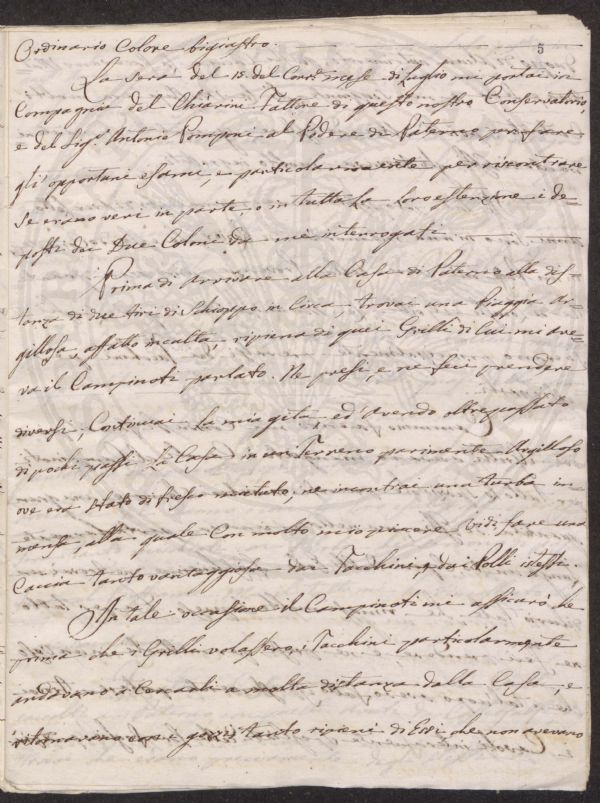 5
Ordinario Colore bigiastro.
La sera del 15. del Corr.e mese di Luglio mi portai in
Compagnia del Chiarini Fattore di questo nostro Conservatorio,
e del Sig.r Antonio Pomponi al Podere di Paterno per fare
gli' opportuni esami, e particolarmente per riscontrare
se erano veri in parte, o in tutta la loro estensione i de=
posti dei Due Coloni da me interrogati.
Prima di arrivare alla Casa di Paterno alla dis=
tanza di due tiri di Schioppo in Circa, trovai una Piaggia Ar=
gillosa, affatto inculta, ripiena di quei Grilli di Cui mi ave=
va il Campinoti parlato. Ne presi, e ne feci prendere
diversi, Continuai la mia gita, ed' avendo oltrepassato
di pochi passi la Casa in un Terreno parimente Argilloso
ove era stato di fresco mietuto, ne incontrai una turba im=
mensa, alla quale Con molto mio piacere vidi fare una
Caccia tanto vantaggiosa dai Tacchini, e dai Polli istessi.
In tale occasione il Campinoti mi assicurò che
prima che i Grilli volassero, i Tacchini particolarmente
andavano a Cercarli a molta distanza dalla Casa, e
ritornavano con i gozzi tanto ripieni di Essi che non avevano